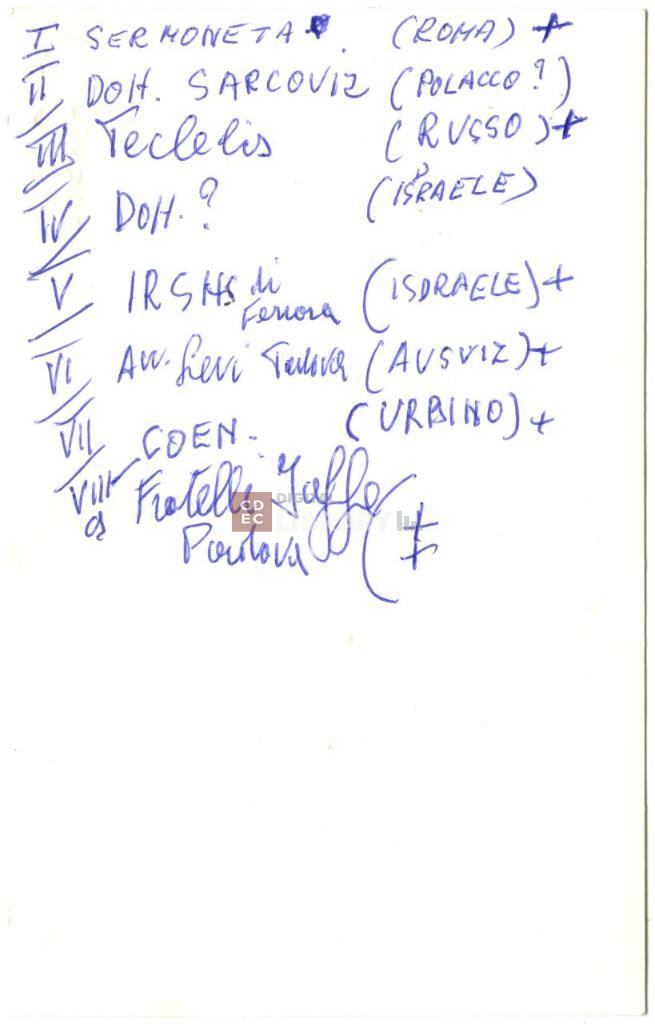 I SERMONETA . (ROMA) +
II DOtt. SARCOVIZ (POLACCO?)
III (RUSSO) +
IV DOtt. ? (ISRAELE)
V di (ISDRAELE) +
Ferrara
VI Avv. Levi Padova (AUSVIZ) +
VII COEN. (URBINO) +
VIII Fratelli Jaffe (
Padova +
CDEC DIGITAL LIBRARY